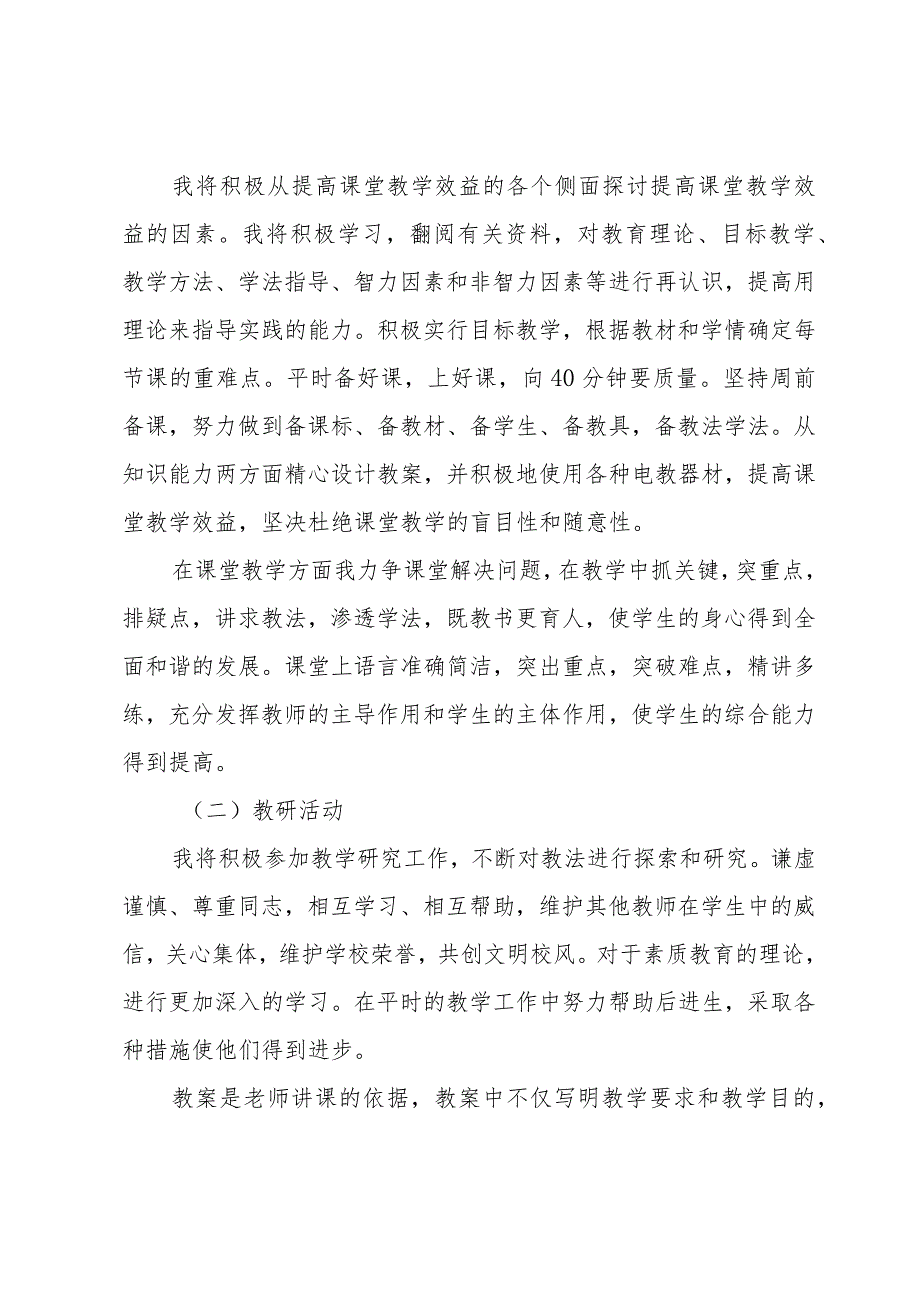 我将积极从提高课堂教学效益的各个侧面探讨提高课堂教学效
益的因素。我将积极学习，翻阅有关资料，对教育理论、目标教学、
教学方法、学法指导、智力因素和非智力因素等进行再认识，提高用
理论来指导实践的能力。积极实行目标教学，根据教材和学情确定每
节课的重难点。平时备好课，上好课，向40分钟要质量。坚持周前
备课，努力做到备课标、备教材、备学生、备教具，备教法学法。从
知识能力两方面精心设计教案，并积极地使用各种电教器材，提高课
堂教学效益，坚决杜绝课堂教学的盲目性和随意性。
在课堂教学方面我力争课堂解决问题，在教学中抓关键，突重点，
排疑点，讲求教法，渗透学法，既教书更育人，使学生的身心得到全
面和谐的发展。课堂上语言准确简洁，突出重点，突破难点，精讲多
练，充分发挥教师的主导作用和学生的主体作用，使学生的综合能力
得到提高。
（二）教研活动
我将积极参加教学研究工作，不断对教法进行探索和研究。谦虚
谨慎、尊重同志，相互学习、相互帮助，维护其他教师在学生中的威
信，关心集体，维护学校荣誉，共创文明校风。对于素质教育的理论，
进行更加深入的学习。在平时的教学工作中努力帮助后进生，采取各
种措施使他们得到进步。
教案是老师讲课的依据，教案中不仅写明教学要求和教学目的，